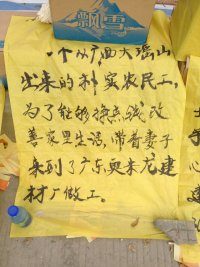 飘雪
一个从广西大瑶山
出来的朴实农民工，
为了能够挣点钱改
善家里生活，带着妻子
来到了广东 米龙建
材厂做工。